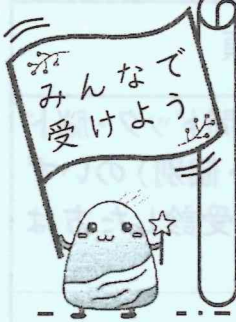 みんなで
受けよう